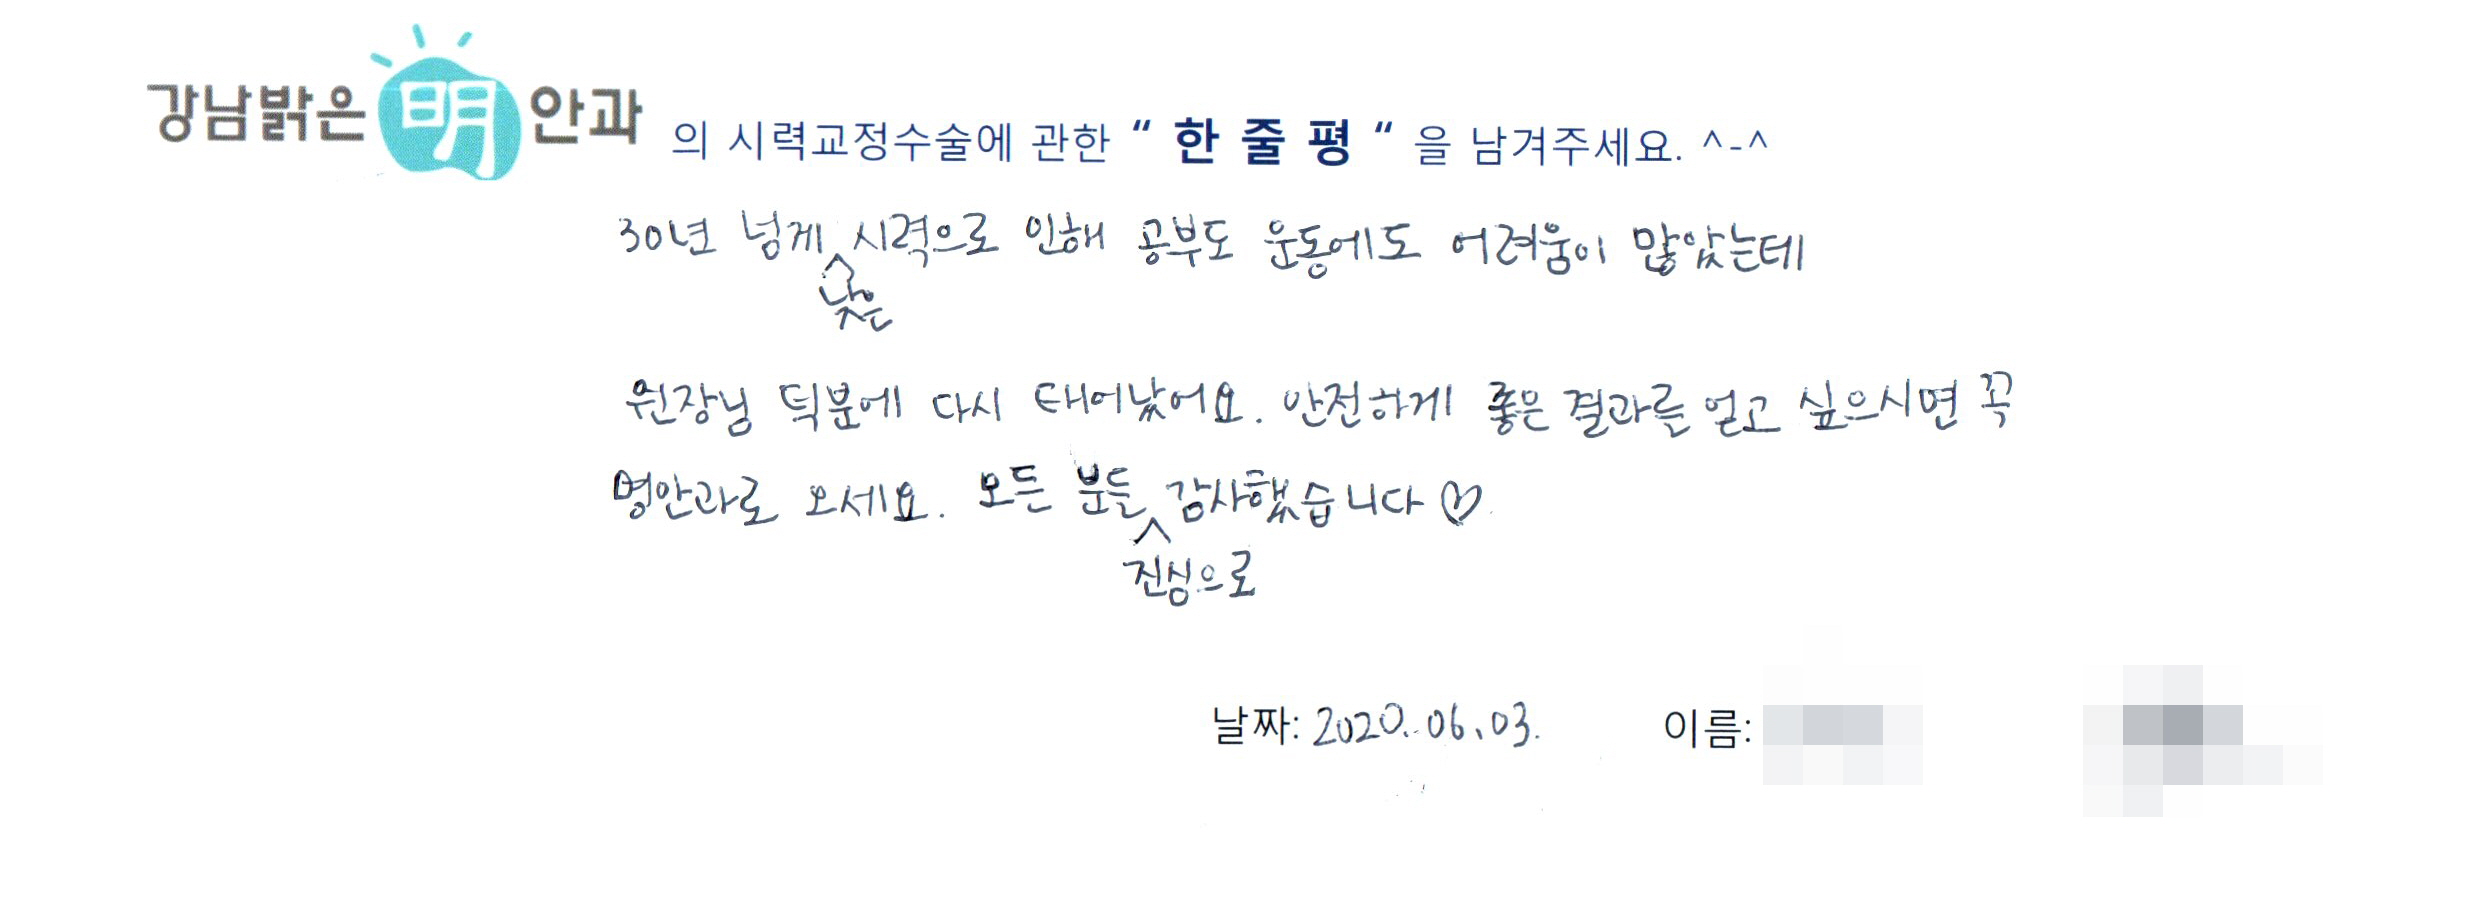 강남밝은明안과 의 시력교정수술에 관한 “ 한 줄 평 “ 을 남겨주세요. ^-^
30년 넘게 시력으로 인해 공부도 운동에도 어려움이 많았는데
낮은
원장님 덕분에 다시 태어났어요. 안전하게 좋은 결과를 얻고 싶으시면 꼭
명안과로 오세요. 모든 분들 감사했습니다♡
진심으로
날짜: 2020. 06. 03. 이름: